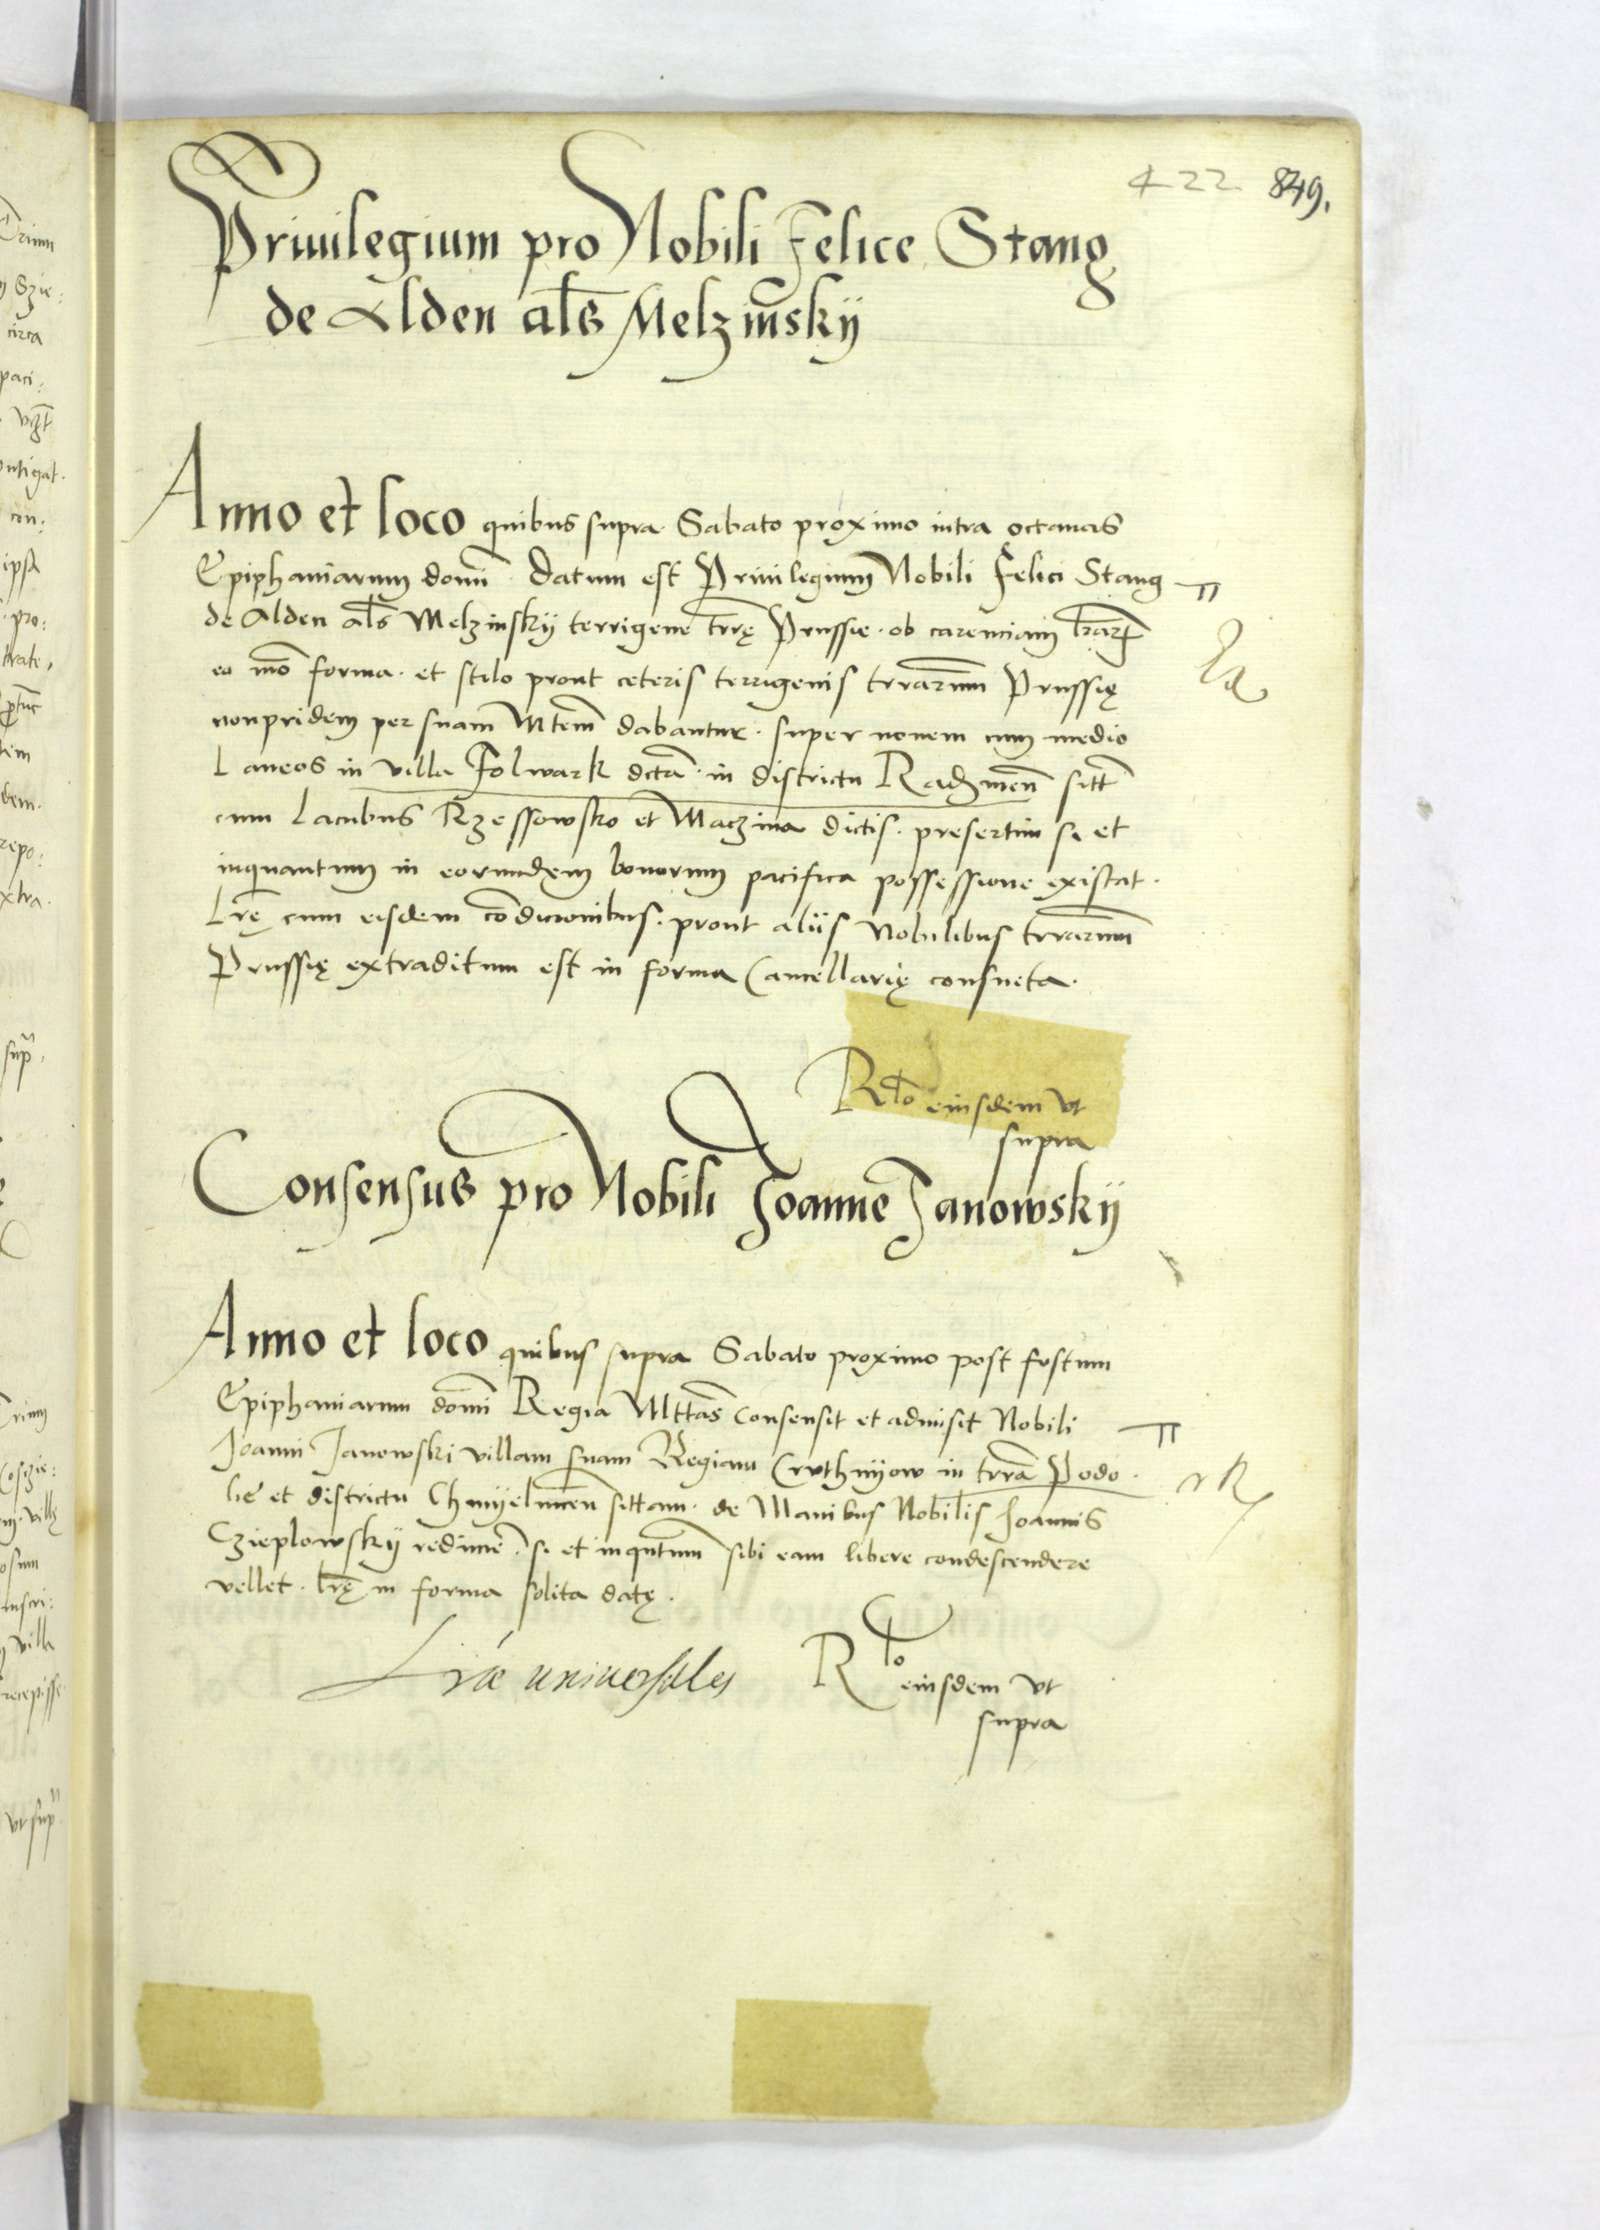 422 849.
Priuilegium pro Nobili Felice Stang
de Alden als Melzinskÿ
Anno et loco quibus supra Sabato proximo intra octauas
Epiphaniarum domi Datum est Priuilegium Nobili Felici Stang
de Alden als Melzinskÿ terrigene trrę Prussie . ob carenciam
eo mo forma . et stilo prout ceteris terrigenis trrarum Prussię
nonpridem per suam Mtem dabantur . super nouem cum medio
Laneos in villa Folwark dcta . in districtu Radzinen sitt
cum Lacubus Rzessowsko et Maczina dictis . presertim si et
inquantum in eorundem bonorum pacifica possessione existat .
Lrę cum eisdem condicionibus . prout aliis Nobilibus trrarum
Prussię extraditum est in forma Cancellarię consueta .
Rlo eiusdem vt
supra
Consensus pro Nobili Joanne Janowskÿ
Anno et loco quibus supra Sabato proximo post festum
Epiphaniarum domi Regia Mttas consensit et admisit Nobili
Joanni Janowski villam suam Regiam Cruthnÿow in trra Podo
lie et districtu Chmÿelnicen sittam . de Manibus Nobilis Joannis
Czieplowskÿ redimere . si et inquntum sibi eam libere condescendere
vellet . lrę in forma solita datę .
Lræ uniuersales
Rlo
eiusdem vt
supra